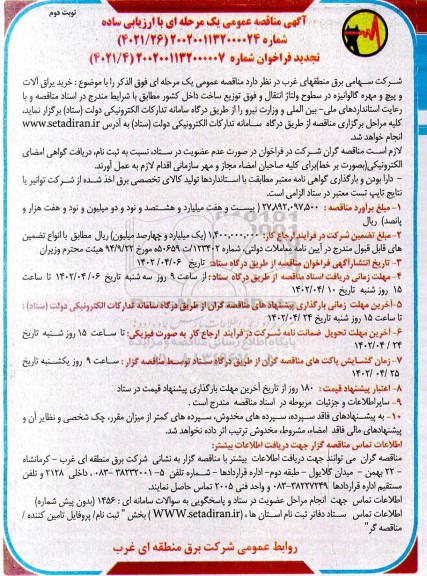 نوبت دوم
آگهی مناقصه عمومی یک مرحله ای با ارزیابی ساده
شماره ۲۰۰۲۰۰۱۱۳۲۰۰۰۰۲۴ (۴۰۲۱/۲۶)
تجدید فراخوان شماره ۲۰۰۲۰۰۱۱۳۲۰۰۰۰۰۷ (۴۰۲۱/۴)
شرکت سهامی برق منطقهای غرب در نظر دارد مناقصه عمومی یک مرحله ای فوق الذکر را با موضوع : خرید یراق آلات
و پیچ و مهره گالوانیزه در سطوح ولتاژ انتقال و فوق توزیع ساخت داخل کشور مطابق با شرایط مندرج در اسناد مناقصه و با
رعایت استانداردهای ملی- بین المللی و وزارت نیرو را از طریق درگاه سامانه تدارکات الکترونیکی دولت (ستاد) برگزار نماید،
کلیه مراحل برگزاری مناقصه از طریق درگاه سامانه تدارکات الکترونیکی دولت (ستاد) به آدرس www.setadiran.ir
انجام خواهد شد.
لازم است مناقصه گران شرکت در فراخوان در صورت عدم عضویت در ستاد، نسبت به ثبت نام، دریافت گواهی امضای
الکترونیکی(بصورت بر خط)برای کلیه صاحبان امضاء مجاز و مهر سازمانی اقدام لازم به عمل آورند.
- دارا بودن و بارگذاری گواهی نامه معتبر مطابقت با استانداردها تولید کالای تخصصی برق اخذ شده از شرکت توانیر یا
نتایج تایپ تست معتبر در ستاد الزامی است.
۱- مبلغ برآورد مناقصه : ۲۷,۸۹۲,۰۹۷,۵۰۰ ( بیست و هفت میلیارد و هشتصد و نود و دو میلیون و نود و هفت هزار و
پانصد) ریال
۲- مبلغ تضمین شرکت در فرآیند ارجاع کار: ۱,۴۰۰,۰۰۰,۰۰۰ (یک میلیارد و چهارصد میلیون) ریال مطابق با انواع تضمین
های قابل قبول مندرج در آیین نامه معاملات دولتی، شماره ۱۲۳۴۰۲/ت۵۰۶۵۹ه مورخ ۹۴/۹/۲۲ هیئت محترم وزیران
۳- تاریخ انتشار آگهی فراخوان مناقصه از طریق درگاه ستاد: تاریخ ۱۴۰۲/۰۴/۰۶
۴- مهلت زمانی دریافت اسناد مناقصه از طریق درگاه ستاد : از ساعت ۹ روز سه شنبه تاریخ ۱۴۰۲/۰۴/۰۶ تا ساعت
۱۵ روز شنبه تاریخ ۱۴۰۲/۰۴/۱۰
۵- آخرین مهلت زمانی بارگذاری پیشنهاد های مناقصه گران از طریق درگاه سامانه تدارکات الکترونیکی دولت (ستاد) :
تا ساعت ۱۵ روز شنبه تاریخ ۱۴۰۲/۰۴/۲۴
۶- آخرین مهلت تحویل ضمانت نامه شرکت در فرآیند ارجاع کار به صورت فیزیکی : تا ساعت ۱۵ روز شنبه تاریخ
۱۴۰۲/۰۴/۲۴
۷- زمان گشایش پاکت های مناقصه گران از طریق درگاه ستاد توسط مناقصه گزار : ساعت ۹ روز یکشنبه تاریخ
۱۴۰۲/۰۴/۲۵
۸- اعتبار پیشنهاد قیمت : ۱۸۰ روز از تاریخ آخرین مهلت بارگذاری پیشنهاد قیمت در ستاد
۹- سایر اطلاعات و جزئیات مربوطه در اسناد مناقصه مندرج است .
۱۰- به پیشنهادهای فاقد سپرده، سپرده های مخدوش، سپرده های کمتر از میزان مقرر، چک شخصی و نظایر آن و
پیشنهادهای مالی فاقد امضاء، مشروط، مخدوش ترتیب اثر داده نخواهد شد.
اطلاعات تماس مناقصه گزار جهت دریافت اطلاعات بیشتر:
مناقصه گران می توانند جهت دریافت اطلاعات بیشتر با مناقصه گزار به نشانی شرکت برق منطقه ای غرب - کرمانشاه
- ۲۲ بهمن - میدان گلایول - طبقه دوم- اداره قراردادها – شماره تلفن ۵- ۳۸۲۳۲۰۰۱-۰۸۳ ، داخلی ۲۱۲۸ و تلفن
مستقیم اداره قراردادها ۳۸۲۲۷۲۴۹-۰۸۳ و واحد فنی ۲۰۰۵ تماس حاصل نمایند.
اطلاعات تماس جهت انجام مراحل عضویت در ستاد و پاسخگویی به سوالات سامانه ای : ۱۴۵۶ (بدون پیش شماره)
اطلاعات تماس ستاد دفاتر ثبت نام استان ها ، (WWW.setadiran.ir) بخش " ثبت نام/ پروفایل تامین کننده /
مناقصه گر"
روابط عمومی شرکت برق منطقه ای غرب